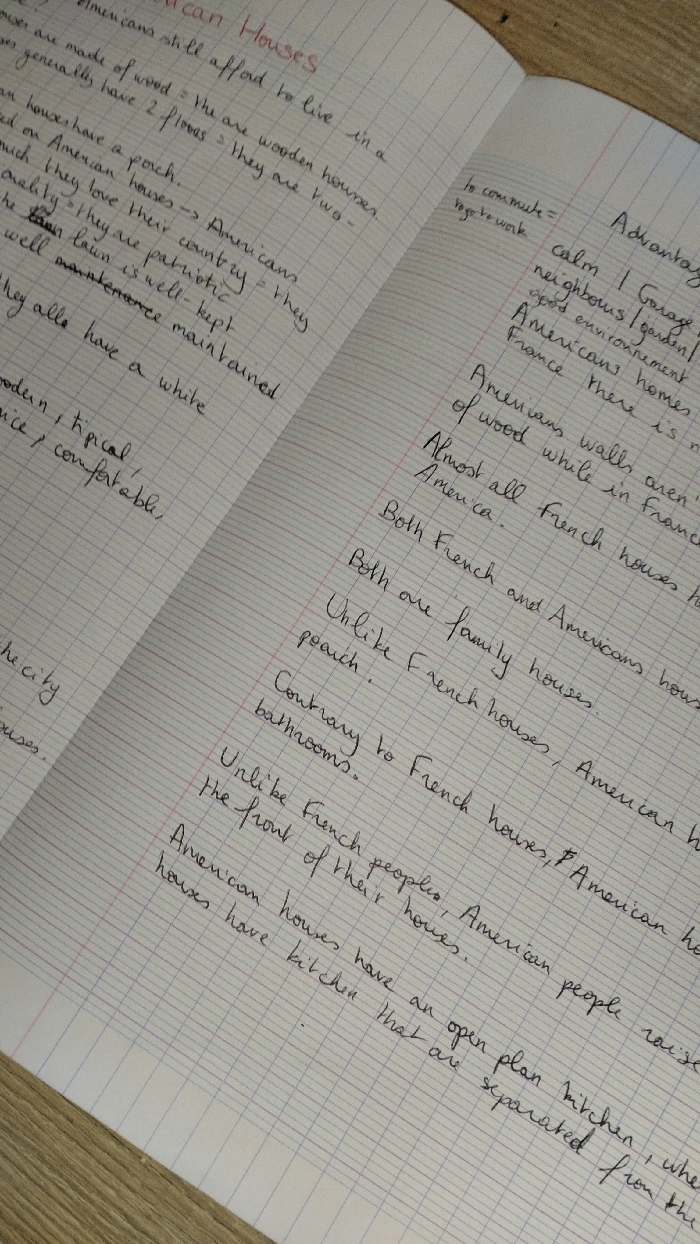 Houses
Americans still afford to live in a
are made of wood = the are wooden houses
generally have 2 floors = they are two-
houses have a porch.
on American houses -> Americans
much they love their country = they
= they are patriotic
lawn is well-kept
well maintenance maintained
they alls have a white
tipical,
comfortable,
the city
to commute =
to go to work
calm / Garage
neighbours / garden /
good environnement
Americans homes
France there is
Americans walls aren'
of wood while in France
Almost all French houses
America.
Both French and Americans
Both are family houses.
Unlike French houses, American
poarch.
Contrary to French houses, American
bathrooms.
Unlike French peoples, American people raise
the front of their houses.
American houses have an open plan kitchen,
houses have kitchen that are separated from the